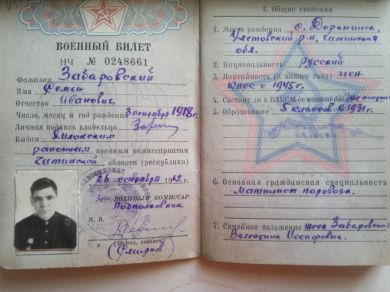 ВОЕННЫЙ БИЛЕТ
НЧ № 0248661
Фамилия Забаровский
Имя Семен
Отчество Иванович
Число, месяц и год рождения 3 сентября 1918 г.
Личная подпись владельца
Выдан
районным военным комиссариатом
Читинской области (республики)
26 сентября
ВОЕННЫЙ КОМИССАР
Подполковник
М. П.
I. Общие сведения
1. Место рождения с. Доронинск,
Улетовский р-н, Читинская
обл.
2. Национальность Русский
3. Партийность (с какого года) член
КПСС с 1945 г.
4. Состоит ли в ВЛКСМ
5. Образование 5 классов в 1931 г.
6. Основная гражданская специальность
Машинист паровоза.
7. Семейное положение жена Забаровская
Валентина Иосифовна.